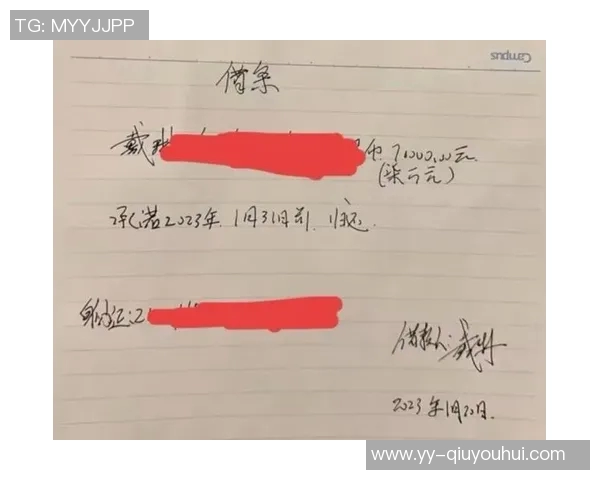 TG: MYYJJPP
Campus
借条
戴 币 7000.00元
(柒仟元)
承诺2023年 1月31日前 归还
身份证:
借款人:戴琳
2023年1月20日
www.yy-qiuyouhui.com